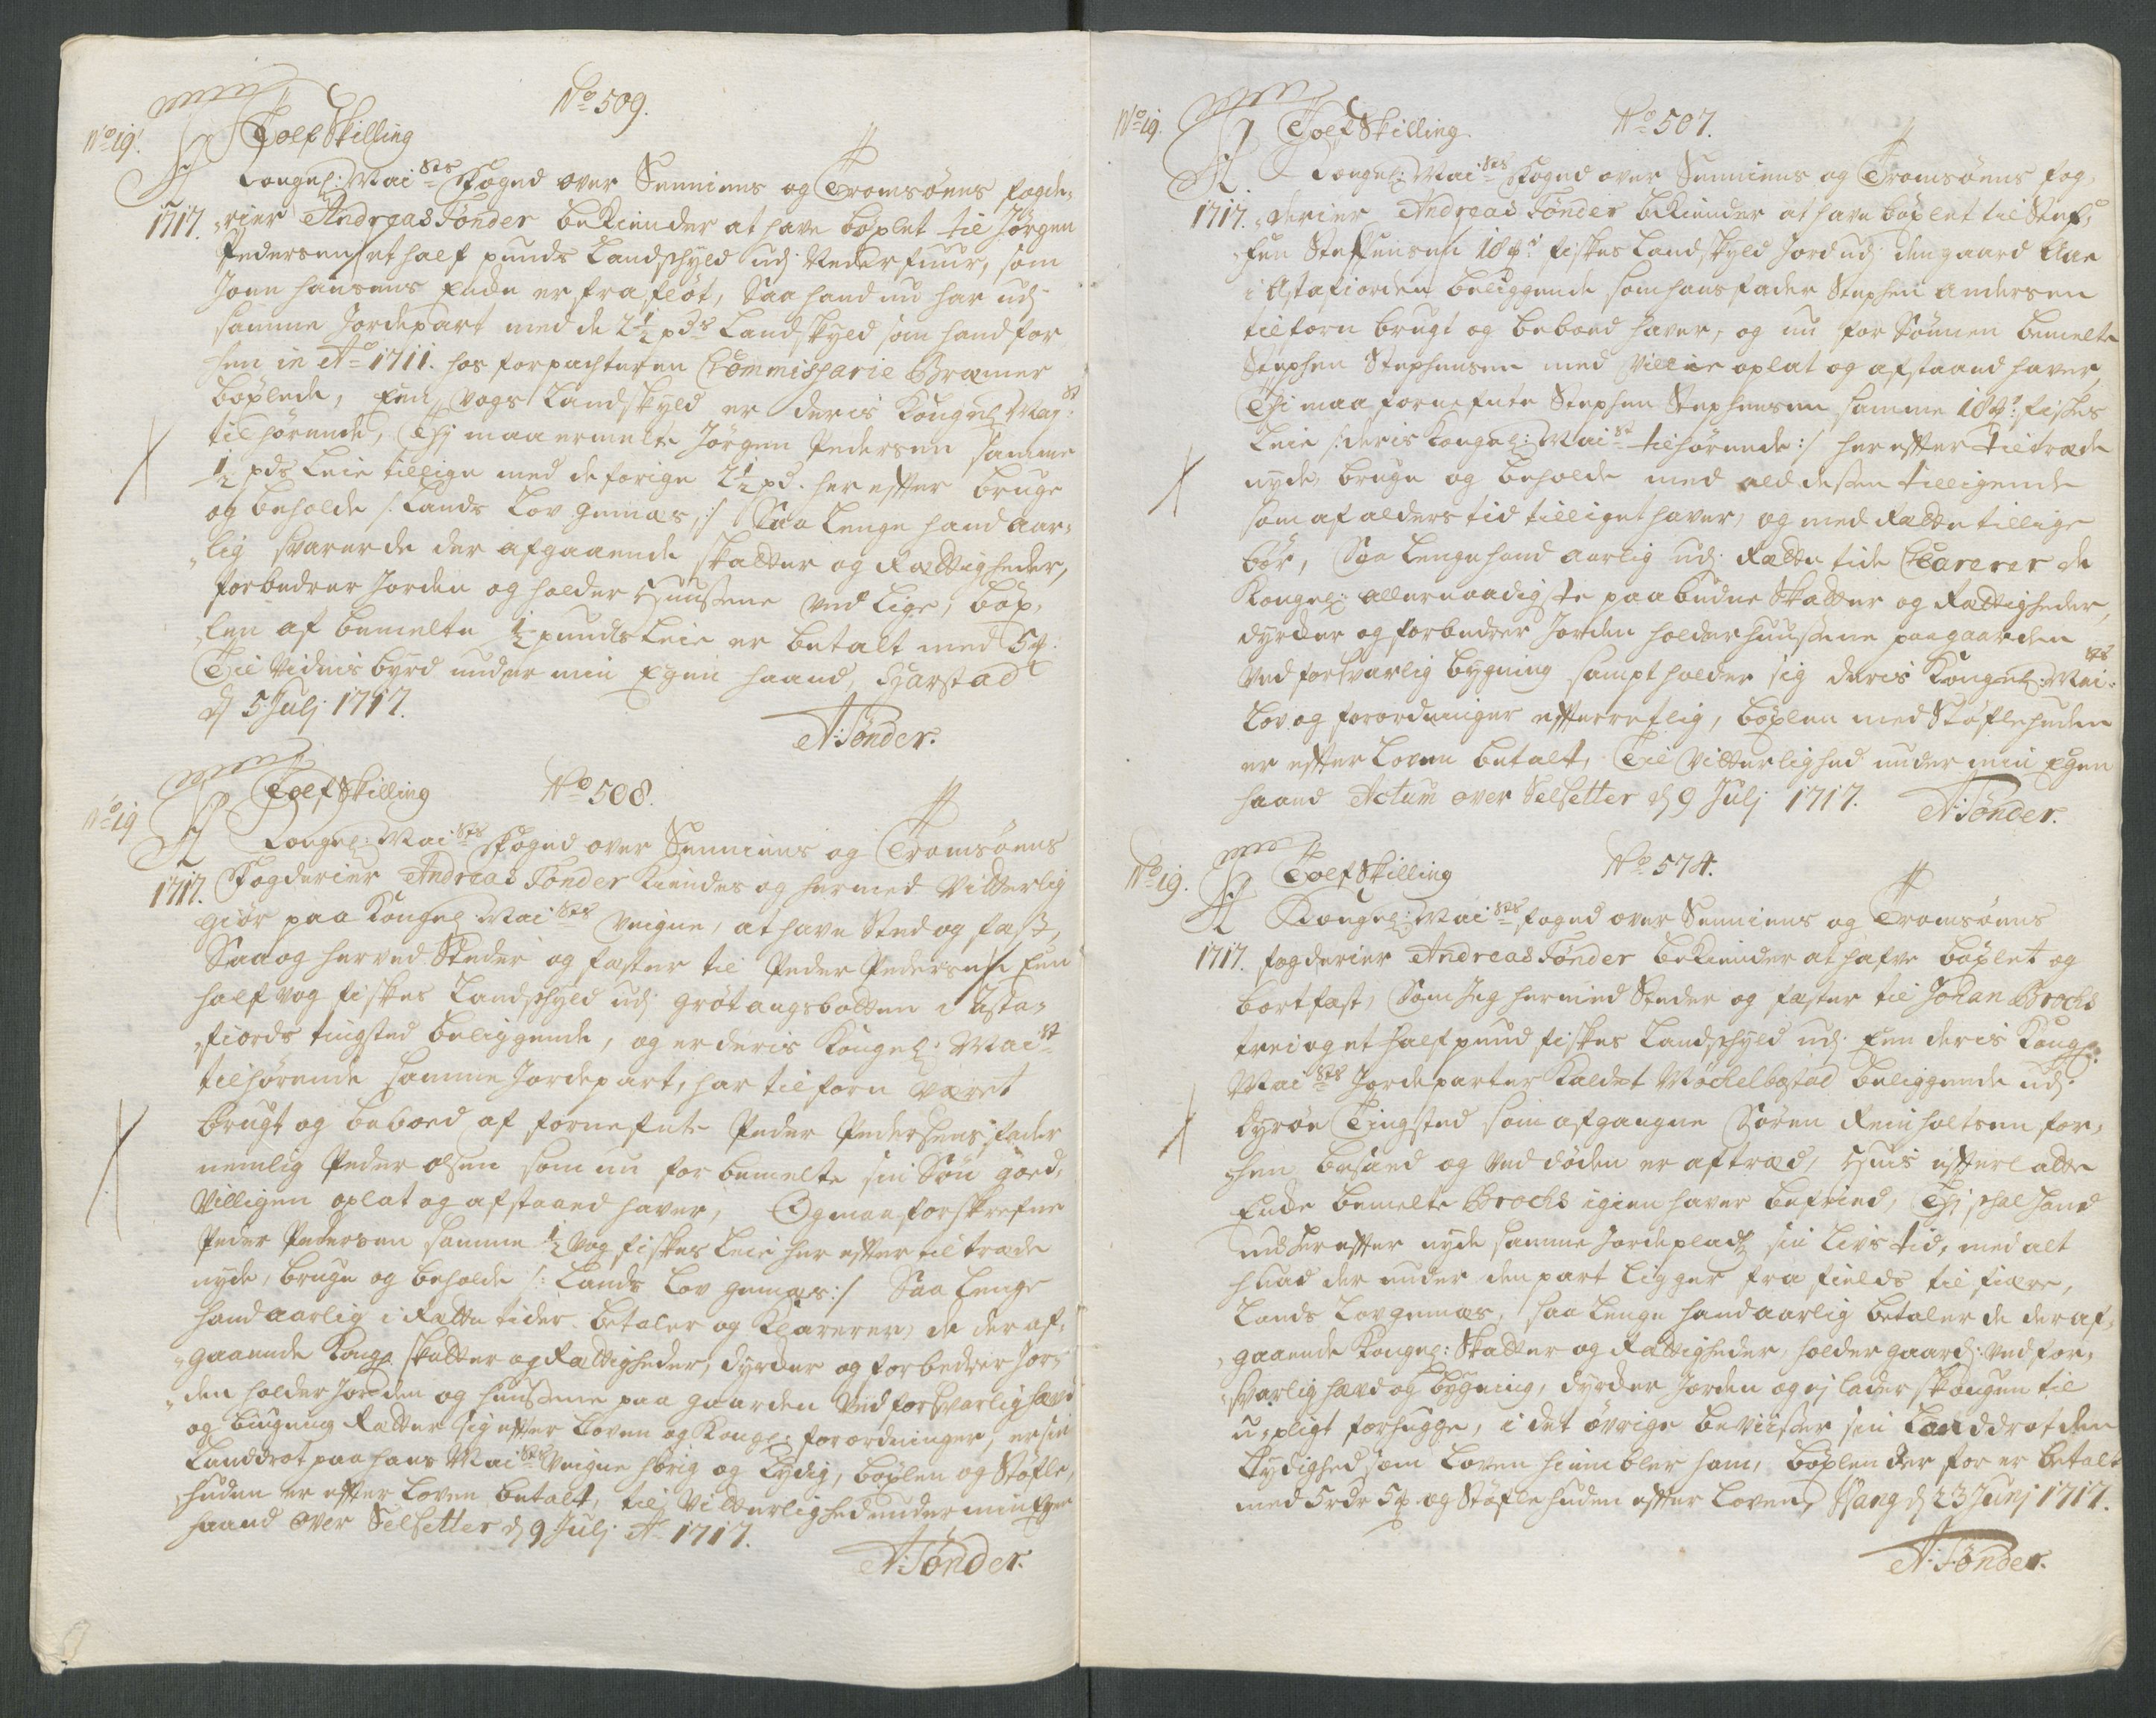 No 509.
No 19. Tolf Skilling
Kongel: Mai sts Foged over Senniens og Tromsöens fogde-
1717. rier Andreas Tönder bekiender at have böxlet til Jörgen
Pedersen et half punds Landschyld udj Nederfiuur, som
Joen hansens Enke er frafløt, Saa hand nu har udj
samme Jordepart med de 2½ pds Landskyld som hand for
hen in Ao 1711. hos forpachteren Commissarie Bræmer
böxlede, Een Vogs Landskyld er deris Kongel Mayst
tilhörende, Thj maa ermelte Jörgen Pedersen samme
½ pds Leie tillige med de forige 2½ pd. her effter bruge
og beholde /: Lands Lov gemæs, :/ Saa Lenge hand aar-
lig svarer de der afgaaende skatter og Rettigheder,
forbedrer Jorden og holder Huusene ved Lige, böx-
len af bemelte ½ punds Leie er betalt med
Til Vidnisbyrd under min Egen haand, Harstad
d 5 Julj 1717.
A: Tönder.
No 508.
No 19 Tolf Skilling
Kongel: Mai sts Foged over Senniens og Tromsöens
1717. Fogderier Andreas Tönder kiendes og hermed Vitterlig
giör paa Kongel: Mai sts Veigne, at have Sted og fæst,
Saa og herved Steder og fæster til Peder Pedersen Een
half vog fiskes Landschyld udj Grötangsbotten i Asta-
fiords tingsted beliggende, og er deris Kongel: Mai st
tilhörende samme Jordepart, har tilforn været
brugt og beboed af fornefnte Peder Pedersens fader
nemlig Peder olsen som nu for bemelte sin Sön goed-
villigen oplat og afstaaed haver, Og maa forskrefne
Peder Pedersen samme ½ Vog fiskes Leie her effter tiltræde
nyde, bruge og beholde /: Lands Lov gemæs :/ Saa Lenge
hand aarlig i Rette tider betaler og Klarerer, de der af-
gaaende Kongl. skatter og Rettigheder, dyrder og forbedrer Jor-
den holder Jorden og huusene paa gaarden ved forsvarlig hævd
og biugning Retter sig effter Loven og Kongel: forordninger, er sin
Landdrot paa hans Mai sts Veigne hörig og Lydig, böxlen og Stöfle-
huden er effter Loven betalt, til Vitterlighed under min Egen
haand over Selsetter d 9 Julj Ao 1717.
A: Tönder.
No 507.
No 19. Tolf Skilling.
Kongel: Mai sts Foged over Senniens og Tromsöens fog-
1717. derier Andreas Tönder bekiender at have böxlet til Stef-
fen Steffensen fiskes Landskyld Jord udj den gaard Aae
i Astafiorden beliggende som hans fader Stephen Andersen
tilforn brugt og beboed haver, og nu for Sönnen bemelte
Stephen Stephensen med Villie oplat og afstaaed haver,
Thi maa fornefnte Stephen Stephensen samme fiskes
Leie /: deris Kongel: Mai st tilhörende :/ her effter tiltræde
nyde, bruge og beholde med ald dessen tilligende
som af alders tid tilliget haver, og med Rette tillige
bör, Saa Lenge hand aarlig udj Rette tide Clarerer de
Kongel: allernaadigste paabudne Skatter og Rettigheder,
dyrder og forbedrer Jorden holder huusene paa gaarden
ved forsvarlig bygning sampt holder sig deris Kongel: Mai sts
Lov og forordninger effterretlig, böxlen med Stöflehuden
er effter Loven betalt, Til Vitterlighed under min Egen
haand Actum over Selsetter d 9 Julj 1717. A: Tönder.
No 574.
No 19. Tolf Skilling
Kongel: Mai sts foged over Senniens og Tromsöens
1717. fogderier Andreas Tönder bekiender at hafve böxlet og
bortfæst, Som Jeg hermed Steder og fæster til Johan Brochs
trei og et half pund fiskes Landschyld udj Een deris Kongl:
Mai sts Jordeparter kaldet Möckelbostad beliggende udj
Dyröe Tingsted som afgangne Sören Reinholtsen for-
hen besaed og ved döden er aftræd, Huis effterlatte
Enke bemelte Brochs igien haver befried, Thj schal Hand
nu her effter nyde samme Jordeplads sin Livs tid, med alt
huad der under den part Ligger fra fields til fiære,
Lands Lov gemæs, saa Lenge hand aarlig betaler de der af-
gaaende Kongel: Skatter og Rettigheder, holder gaard: ved for-
svarlig hævd og bygning, dyrder Jorden og ej lader skougen til
u-pligt forhugge, i det övrige beviiser sin Landdrot den
Lydighed som Loven hiembler ham, böxlen der for er betalt
med 5 rdr og Stöflehuden effter Loven, Stang d 23 Junj 1717.
A: Tönder.